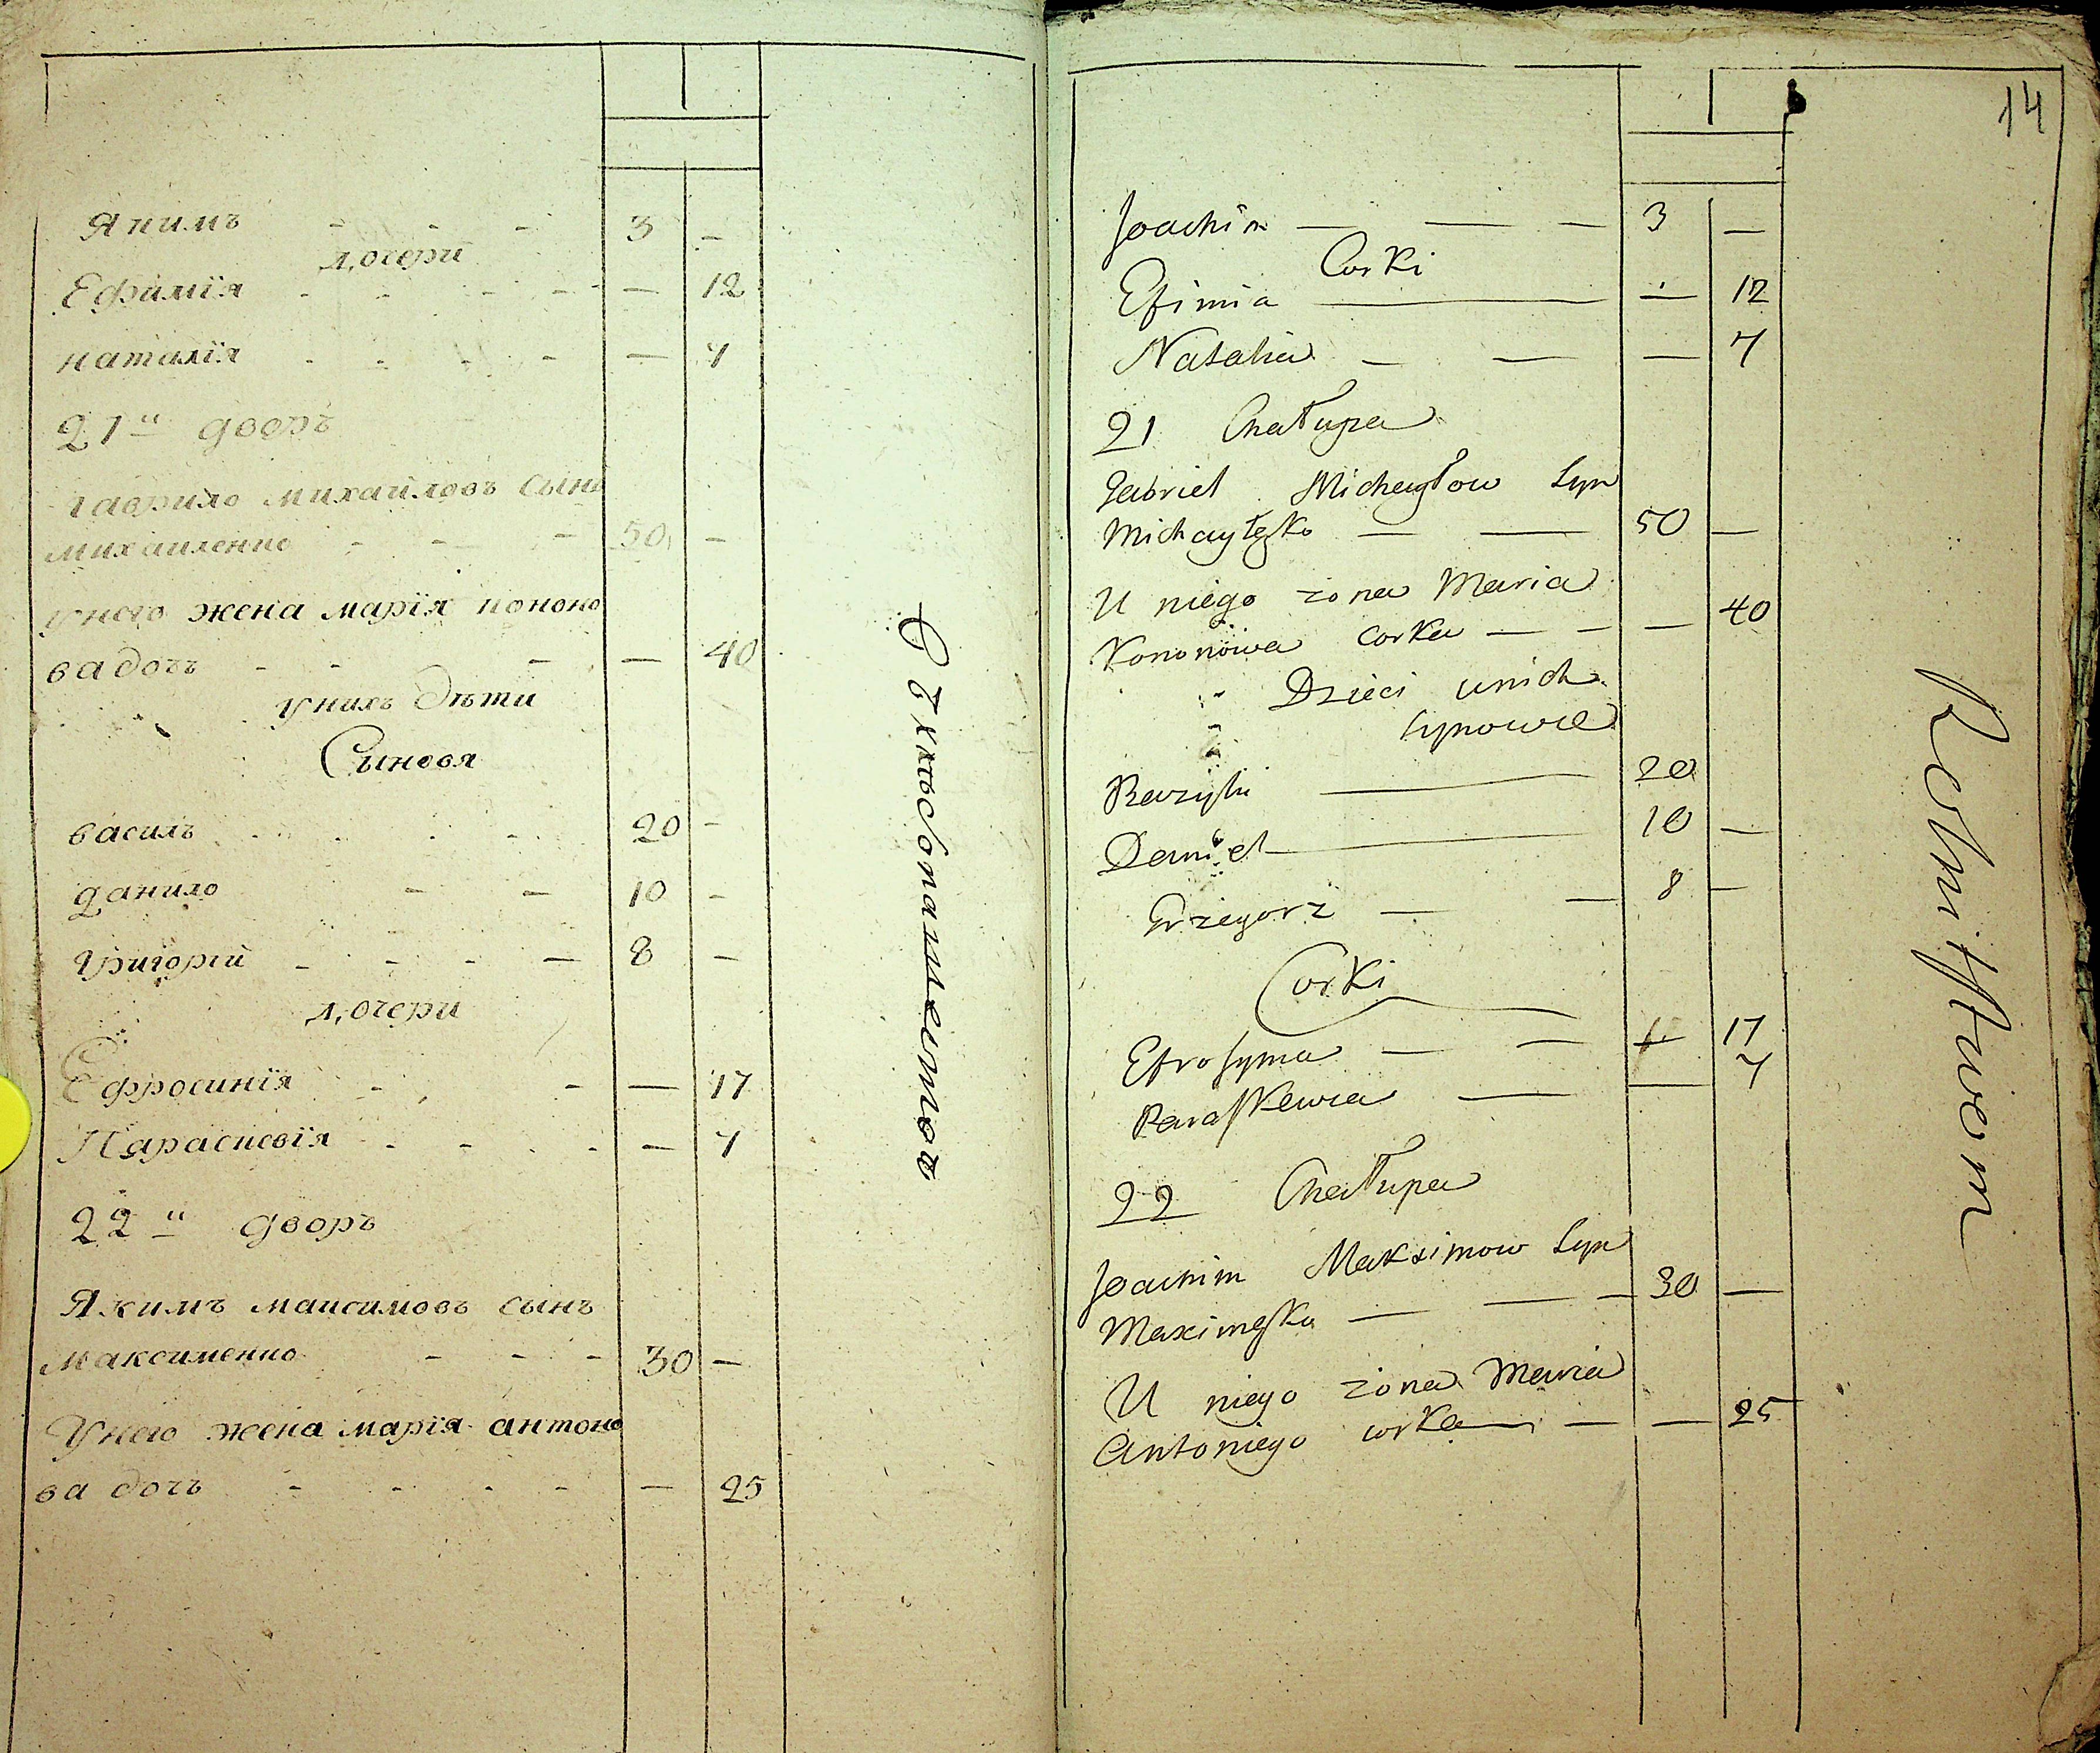 Якимъ - - - 3 -
дочери
Ефимія - - - - - 12
наталія - - - - - 7
21й дворъ
гаврило михайловъ сынъ
михаиленко - - - 50 -
унего жена марія кононо
ва дочъ - - - - 40
унихъ дѣти
Сыновя
василъ - - - 20 -
данило - - 10 -
григорій - - - - 8 -
дочери
Ефросинія - - - - 17
Параскевія - - - - - 7
22й дворъ
Якимъ максимовъ сынъ
максименко - - - 30 -
Унего жена марія антоно
ва дочъ - - - - - 25
14
Joachim — — — 3 —
Corki
Efimia — — 12
Natalia — — — 7
21 Chałupa
Gabriel Michayłow Syn
Michayłęko — — 50 —
U niego zona Maria
Kononowa corka — — — 40
Dzieci unich
Synowie
Bazyli — 20
Daniel — 10 —
Grzegorz — — 8 —
Corki
Efrosynia — — — 17
Paraskewia — — 7
22 Chałupa
Joachim Maksimow Syn
Maximęko — — — 30 —
U niego zona Maria
Antoniego corka — — — 25